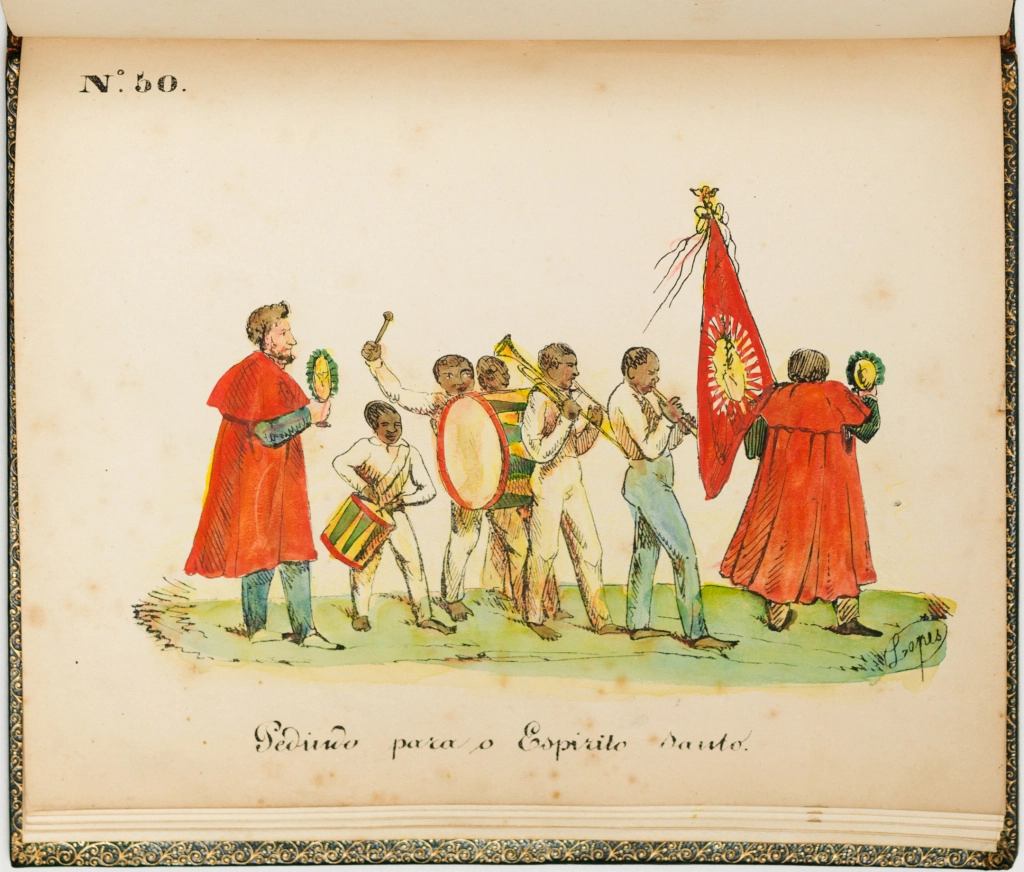 Nº. 50.
Lopes
Pedindo para o Espirito Santo.